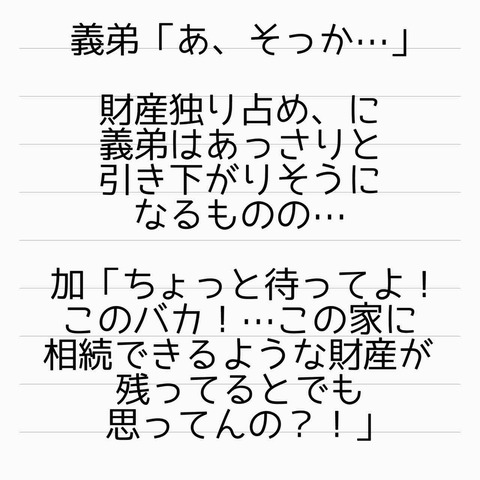 義弟「あ、そっか…」
財産独り占め、に
義弟はあっさりと
引き下がりそうに
なるものの…
加「ちょっと待ってよ！
このバカ！…この家に
相続できるような財産が
残ってるとでも
思ってんの？！」